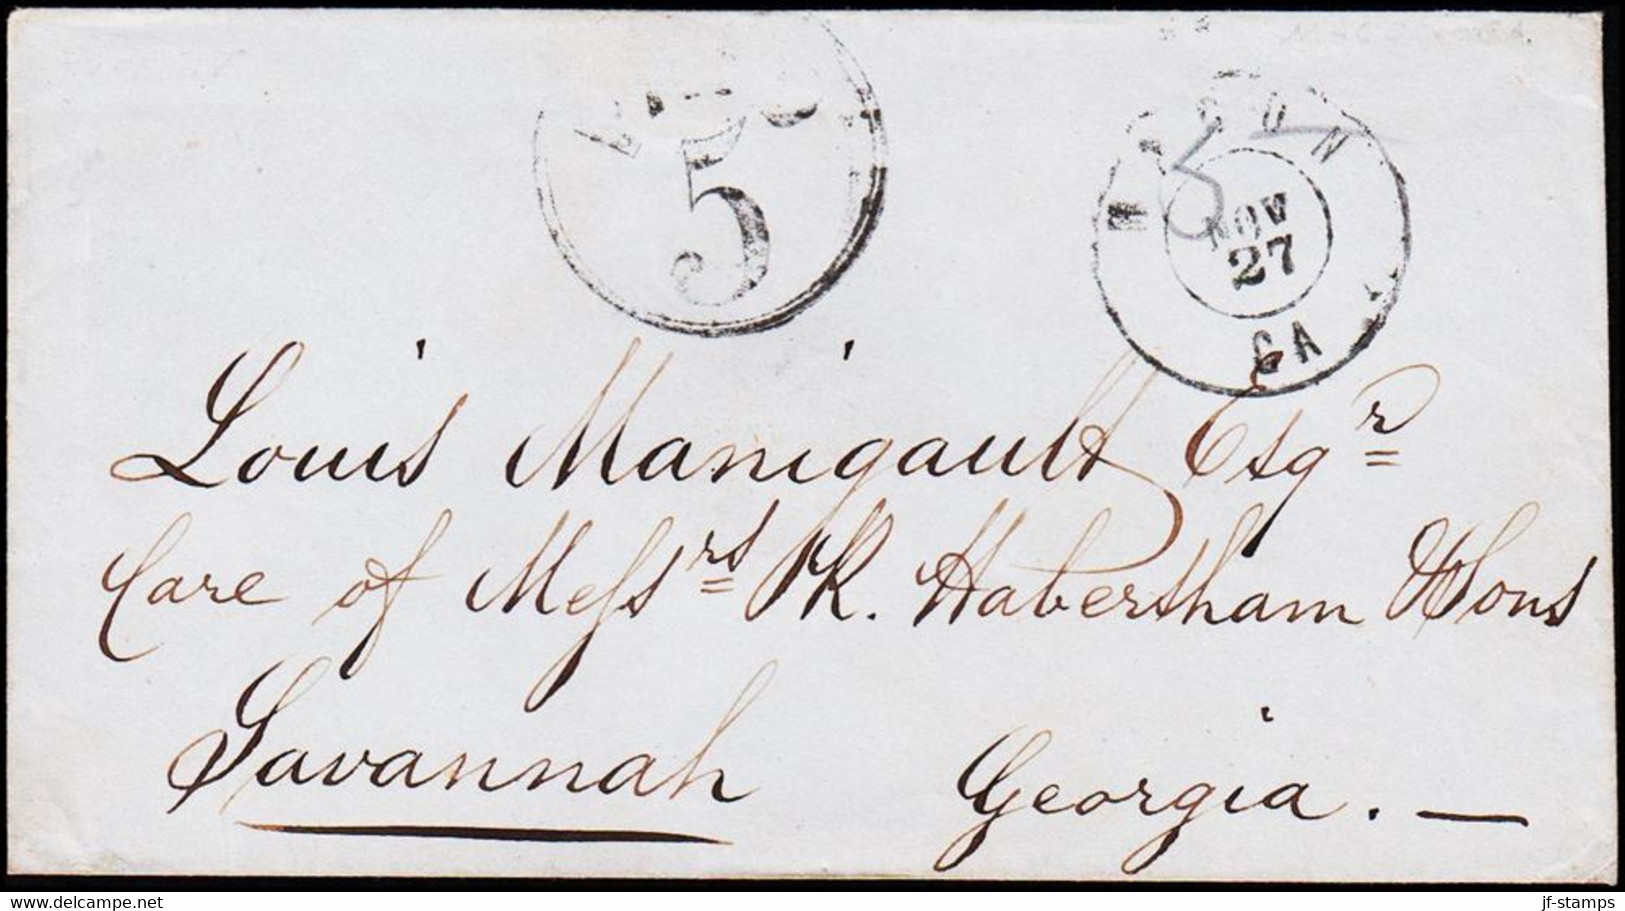 5
MACON
5
NOV
27
GA
Louis Manigault Esqr
Care of Messrs R. Habersham & Sons
Savannah Georgia. —
jf-stamps